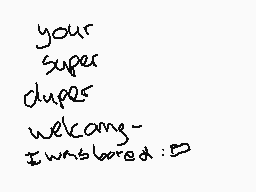 your
super
duper
welcomg-
I was bored :D